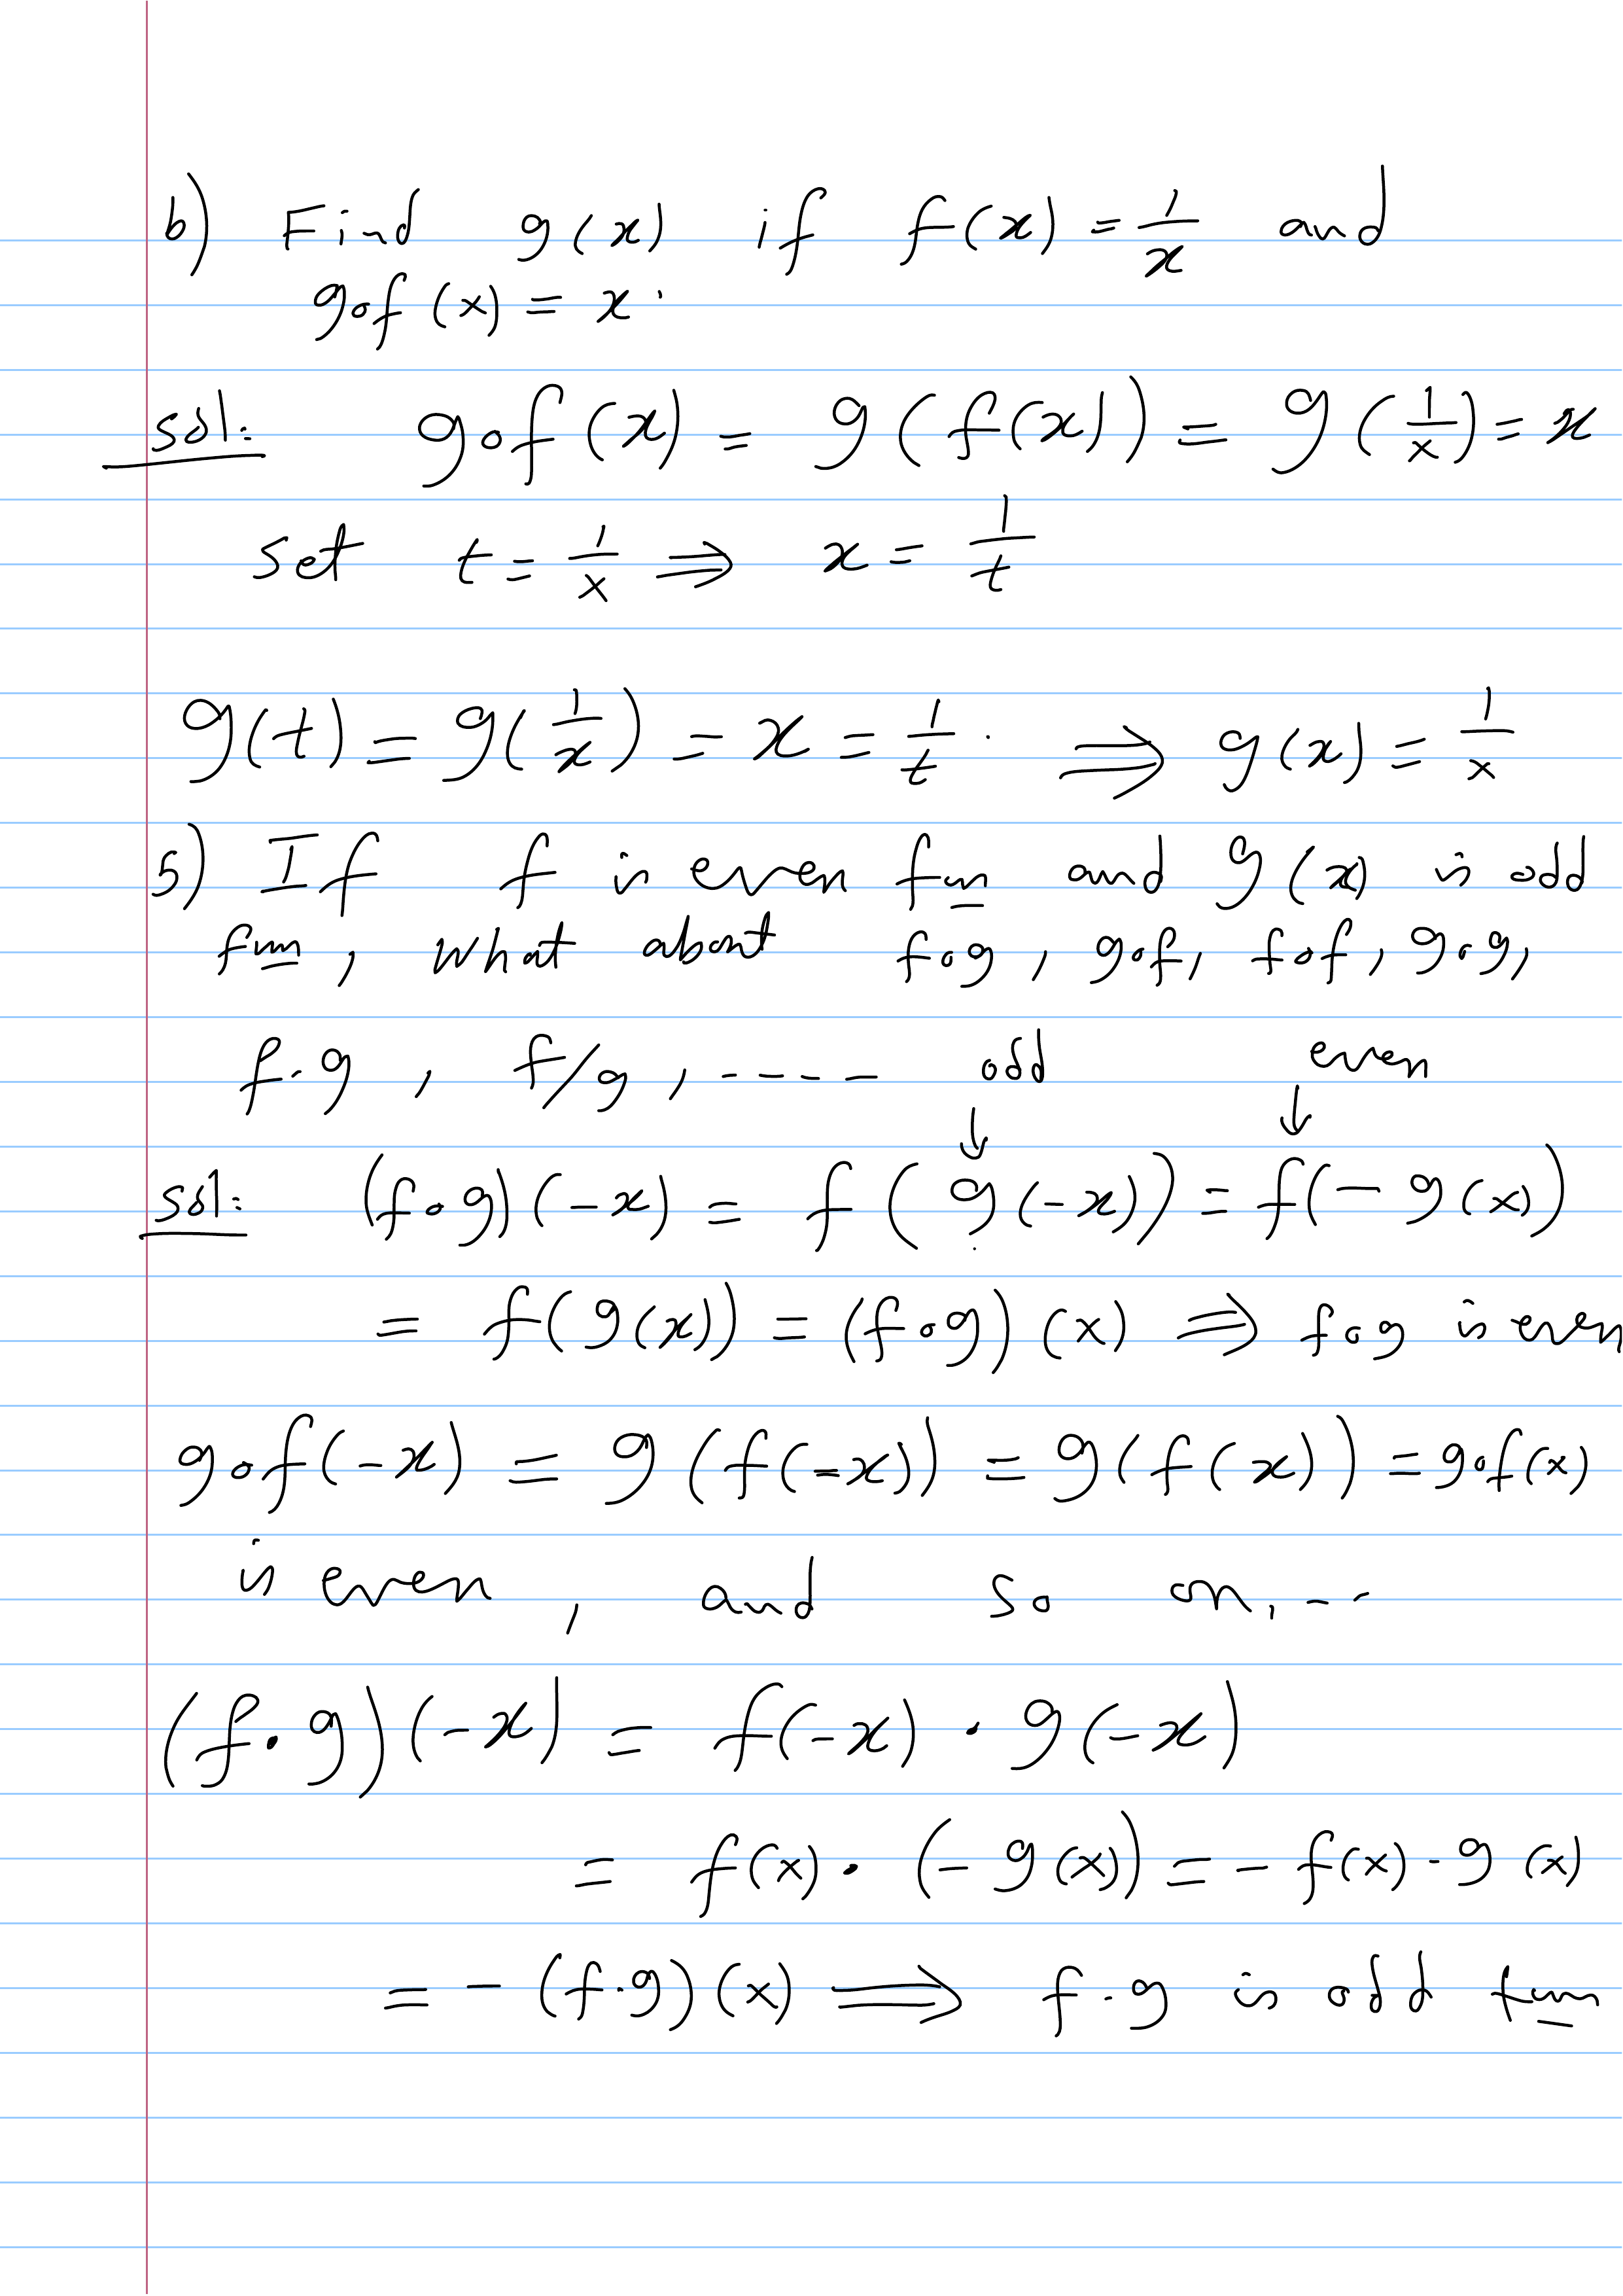 b) Find g(x) if f(x) = 1/x and
gof (x) = x.
sol: gof(x) = g(f(x)) = g(1/x) = x
set t = 1/x ⇒ x = 1/t
g(t) = g(1/x) = x = 1/t . ⇒ g(x) = 1/x
5) If f is even fun and g(x) is odd
fun, what about fog, gof, fof, gog,
f.g , f/g , ----- odd even
↓ ↓
sol: (fog)(-x) = f(g(-x)) = f(-g(x))
= f(g(x)) = (fog)(x) ⇒ fog is even
gof(-x) = g(f(-x)) = g(f(x)) = gof(x)
is even, and so on. --
(f.g)(-x) = f(-x) . g(-x)
= f(x) . (-g(x)) = -f(x) . g(x)
= -(f.g)(x) ⇒ f.g is odd fun